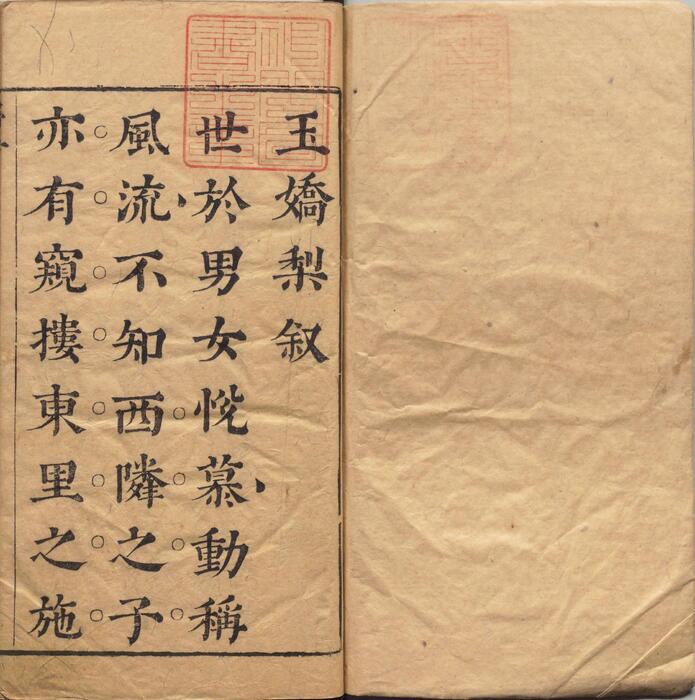 玉嬌梨叙
世於男女恱慕動稱
風流不知西隣之子
亦有窺摟東里之施